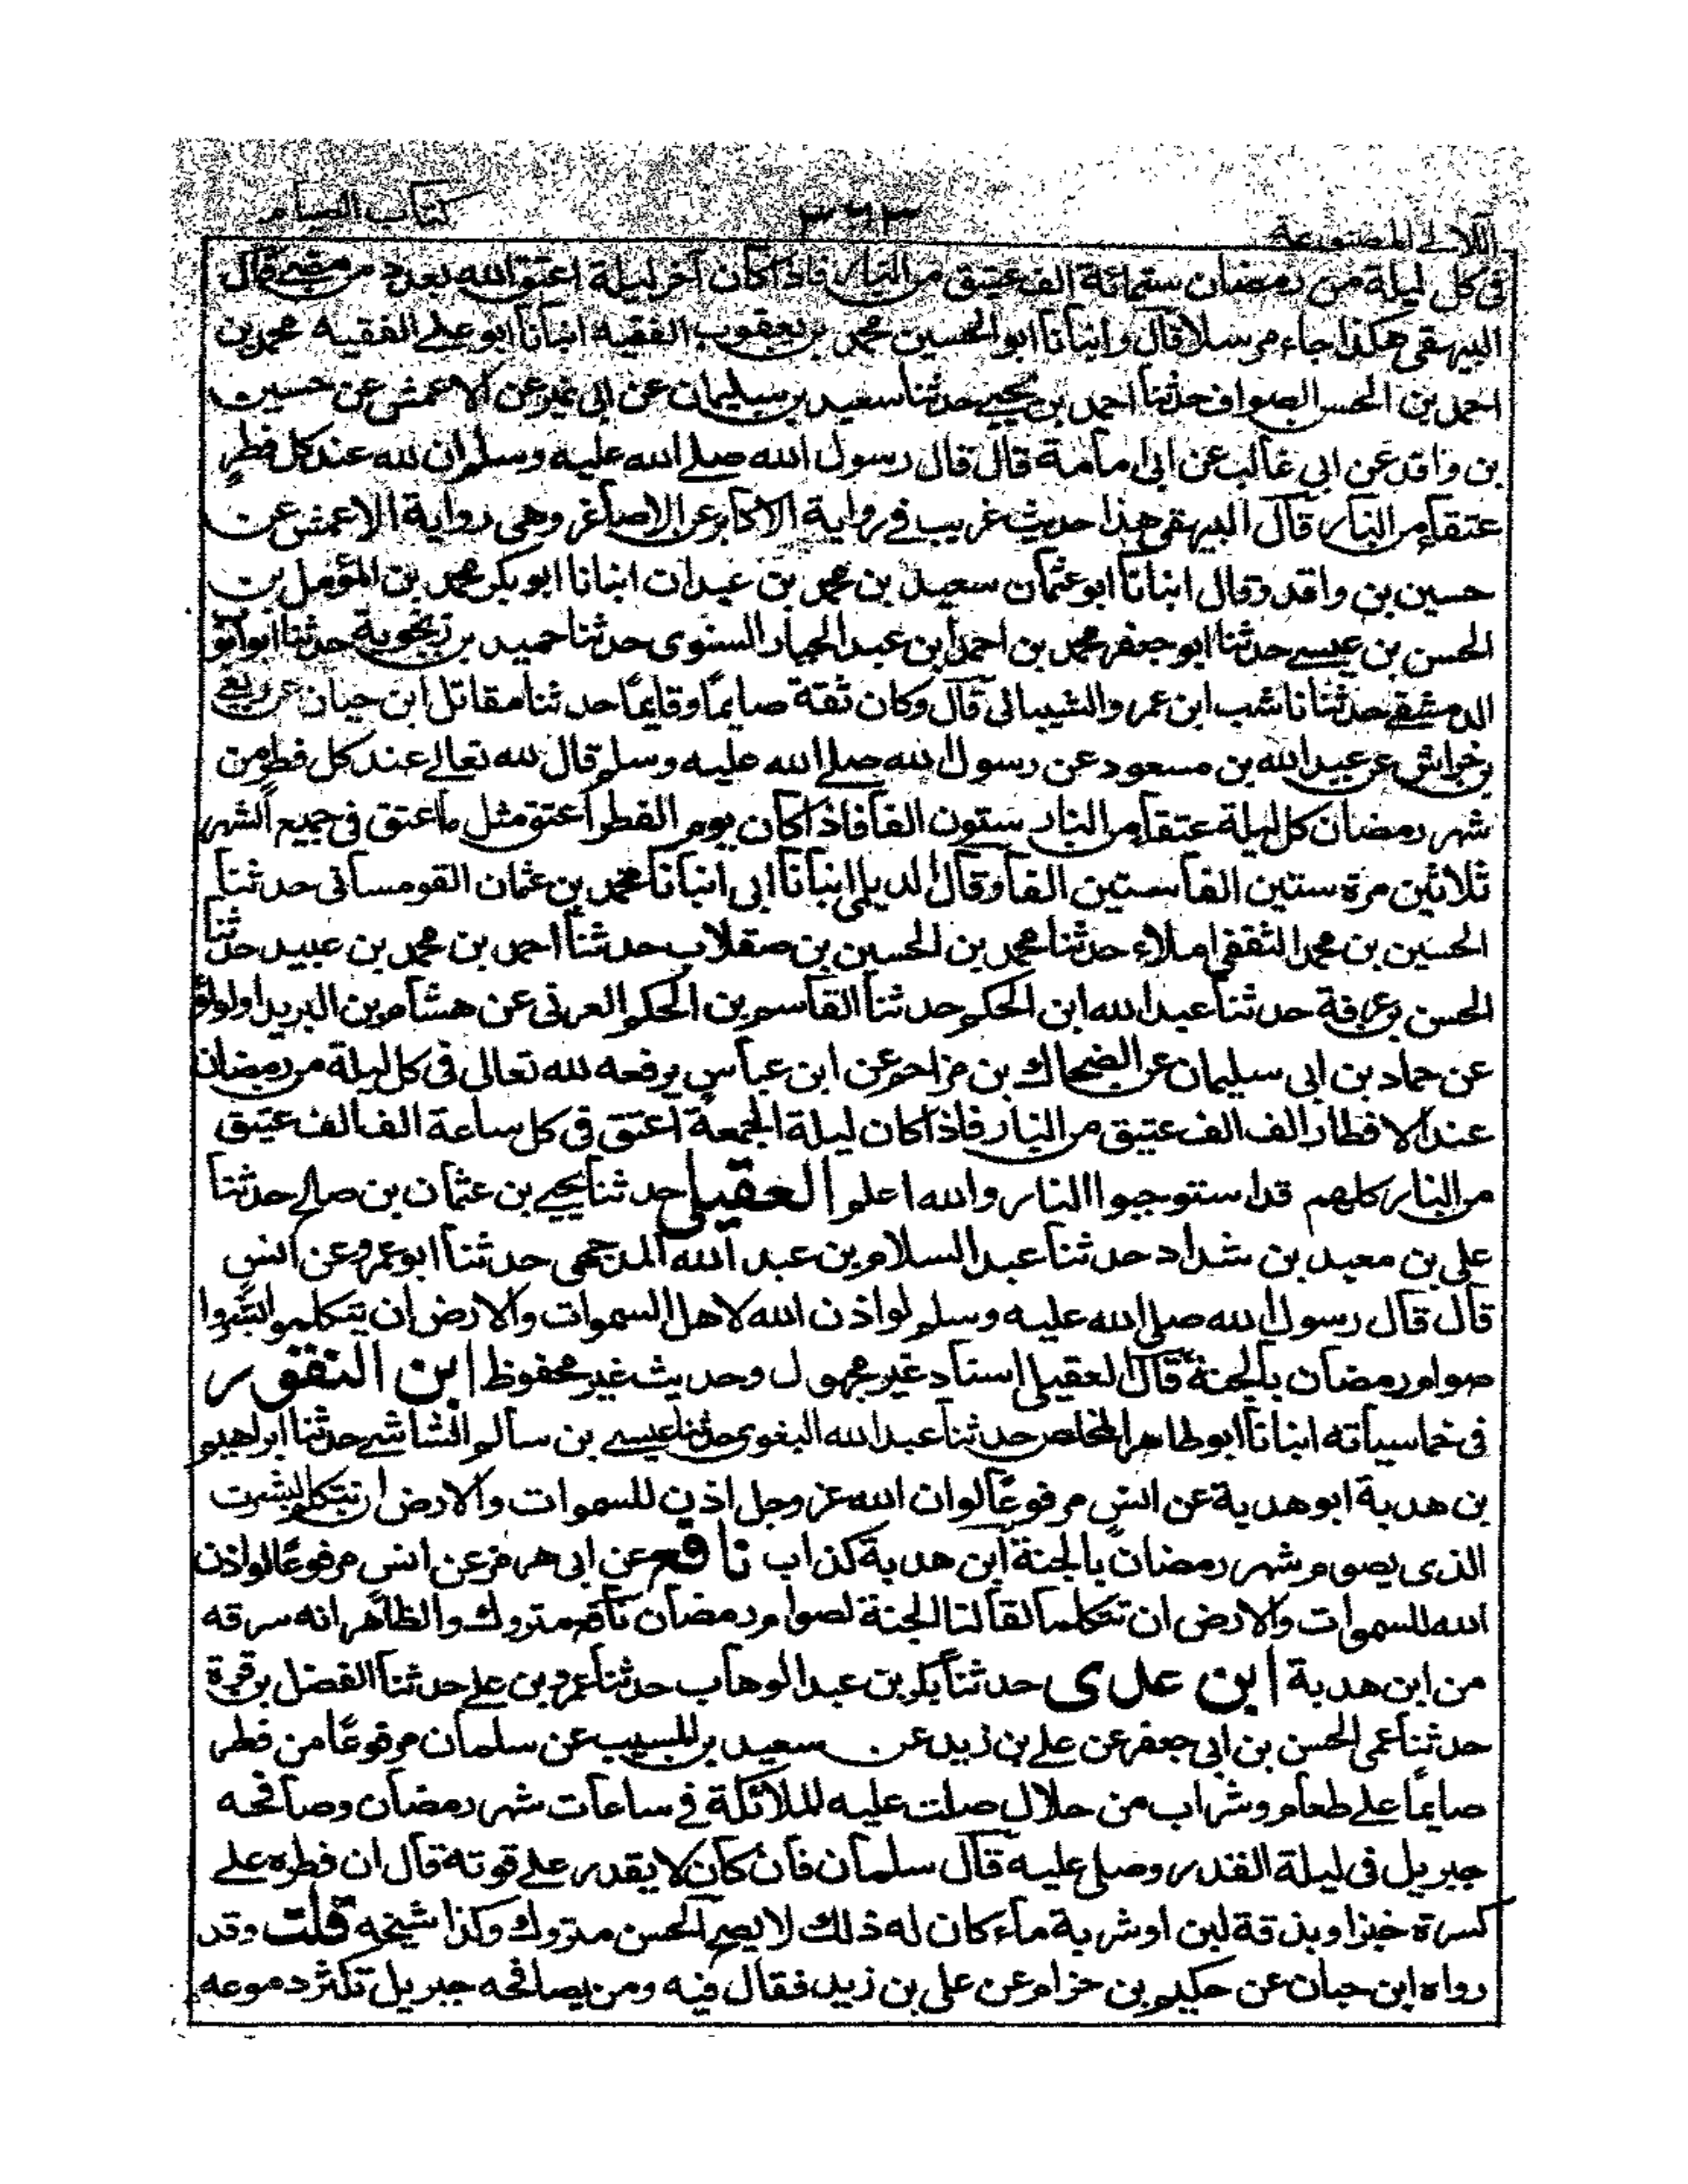 اللآلى المصنوعة ٣٦٣ كتاب الصيام
فى كل ليلة من رمضان ستمائة الف عتيق من النار فاذا كان آخر ليلة اعتق الله بعدد من مضى قال
البيهقى هكذا جاء مرسلا قال وانبانا ابو الحسين محمد بن يعقوب الفقيه انبانا ابو على الفقيه محمد بن
احمد بن الحسن الصواف حدثنا احمد بن يحيى حدثنا سعيد بن سليمان عن ابى عن الاعمش عن حسين
بن واقد عن ابى غالب عن ابى امامة قال قال رسول الله صلى الله عليه وسلم ان لله عند كل فطر
عتقاء من النار قال البيهقى هذا حديث غريب فى رواية الاكابر عن الاصاغر وهى رواية الاعمش عن
حسين بن واقد وقال انبانا ابو عثمان سعيد بن محمد بن عبدان انبانا ابو بكر محمد بن المؤمل بن
الحسن بن عيسى حدثنا ابو جعفر محمد بن احمد ابن عبد الجبار السنوى حدثنا حميد بن زنجوية حدثنا ابو ايوب
الدمشقى حدثنا ناشب ابن عمر والشيبانى قال وكان ثقة صايمًا وقايمًا حدثنا مقاتل ابن حيان عن ربيع
بن خراش عن عبد الله بن مسعود عن رسول الله صلى الله عليه وسلم قال لله تعالى عند كل فطر من
شهر رمضان كل ليلة عتقاء من النار ستون الفا فاذا كان يوم الفطر اعتق مثل ما اعتق فى جميع الشهر
ثلاثين مرة ستين الفا ستين الفا وقال الديلمى انبانا ابى انبانا محمد بن عثمان القومسانى حدثنا
الحسين بن محمد الثقفى املاء حدثنا محمد بن الحسين بن صقلاب حدثنا احمد بن محمد بن عبيد حدثنا
الحسن بن عرفة حدثنا عبد الله ابن الحكم حدثنا القاسم بن الحكم العرنى عن هشام بن
عن حماد بن ابى سليمان عن الضحاك بن مزاحم عن ابن عباس يرفعه لله تعالى فى كل ليلة من رمضان
عند الافطار الف الف عتيق من النار فاذا كان ليلة الجمعة اعتق فى كل ساعة الف الف عتيق
من النار كلهم قد استوجبوا النار والله اعلم العقيلى حدثنا يحيى بن عثمان بن صالح حدثنا
على بن معبد بن شداد حدثنا عبد السلام بن عبد الله المدحجى حدثنا ابو عمرو عن انس
قال قال رسول الله صلى الله عليه وسلم لو اذن الله لاهل السموات والارض ان يتكلموا لبشروا
صوام رمضان بالجنة قال العقيلى اسناد غير مجهول وحديث غير محفوظ ابن النقور
فى خماسياته انبانا ابو طاهر المخلص حدثنا عبد الله البغوى حدثنا عيسى بن سالم الشاشى حدثنا ابراهيم
بن هدبة ابو هدبة عن انس مرفوعًا لو ان الله عز وجل اذن للسموات والارض ان تتكلم لبشرت
الذى يصوم شهر رمضان بالجنة ابن هدبة كذاب نافع عن ابى هرمز عن انس مرفوعًا لو اذن
الله للسموات والارض ان تتكلما لقالتا الجنة لصوام رمضان نافع متروك والظاهر انه سرقه
من ابن هدبة ابن عدى حدثنا بكر بن عبد الوهاب حدثنا عمرو بن على حدثنا الفضل بن قرة
حدثنا عمى الحسن بن ابى جعفر عن على بن زيد عن سعيد بن المسيب عن سلمان مرفوعًا من فطر
صايمًا على طعام وشراب من حلال صلت عليه الملائكة فى ساعات شهر رمضان وصافحه
جبريل فى ليلة القدر وصلى عليه قال سلمان فان كان لا يقدر على قوته قال ان فطره على
كسرة خبز او بذقة لبن او شربة ماء كان له ذلك لا يصح الحسن متروك وكذا شيخه قلت وقد
رواه ابن حبان عن حكيم بن حزام عن على بن زيد فقال فيه ومن يصافحه جبريل تكثر دموعه